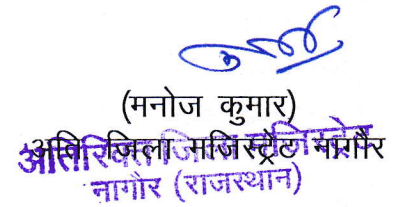 (मनोज कुमार)
अति. जिला मजिस्ट्रेट नागौर
अतिरिक्त जिला मजिस्ट्रेट
नागौर (राजस्थान)